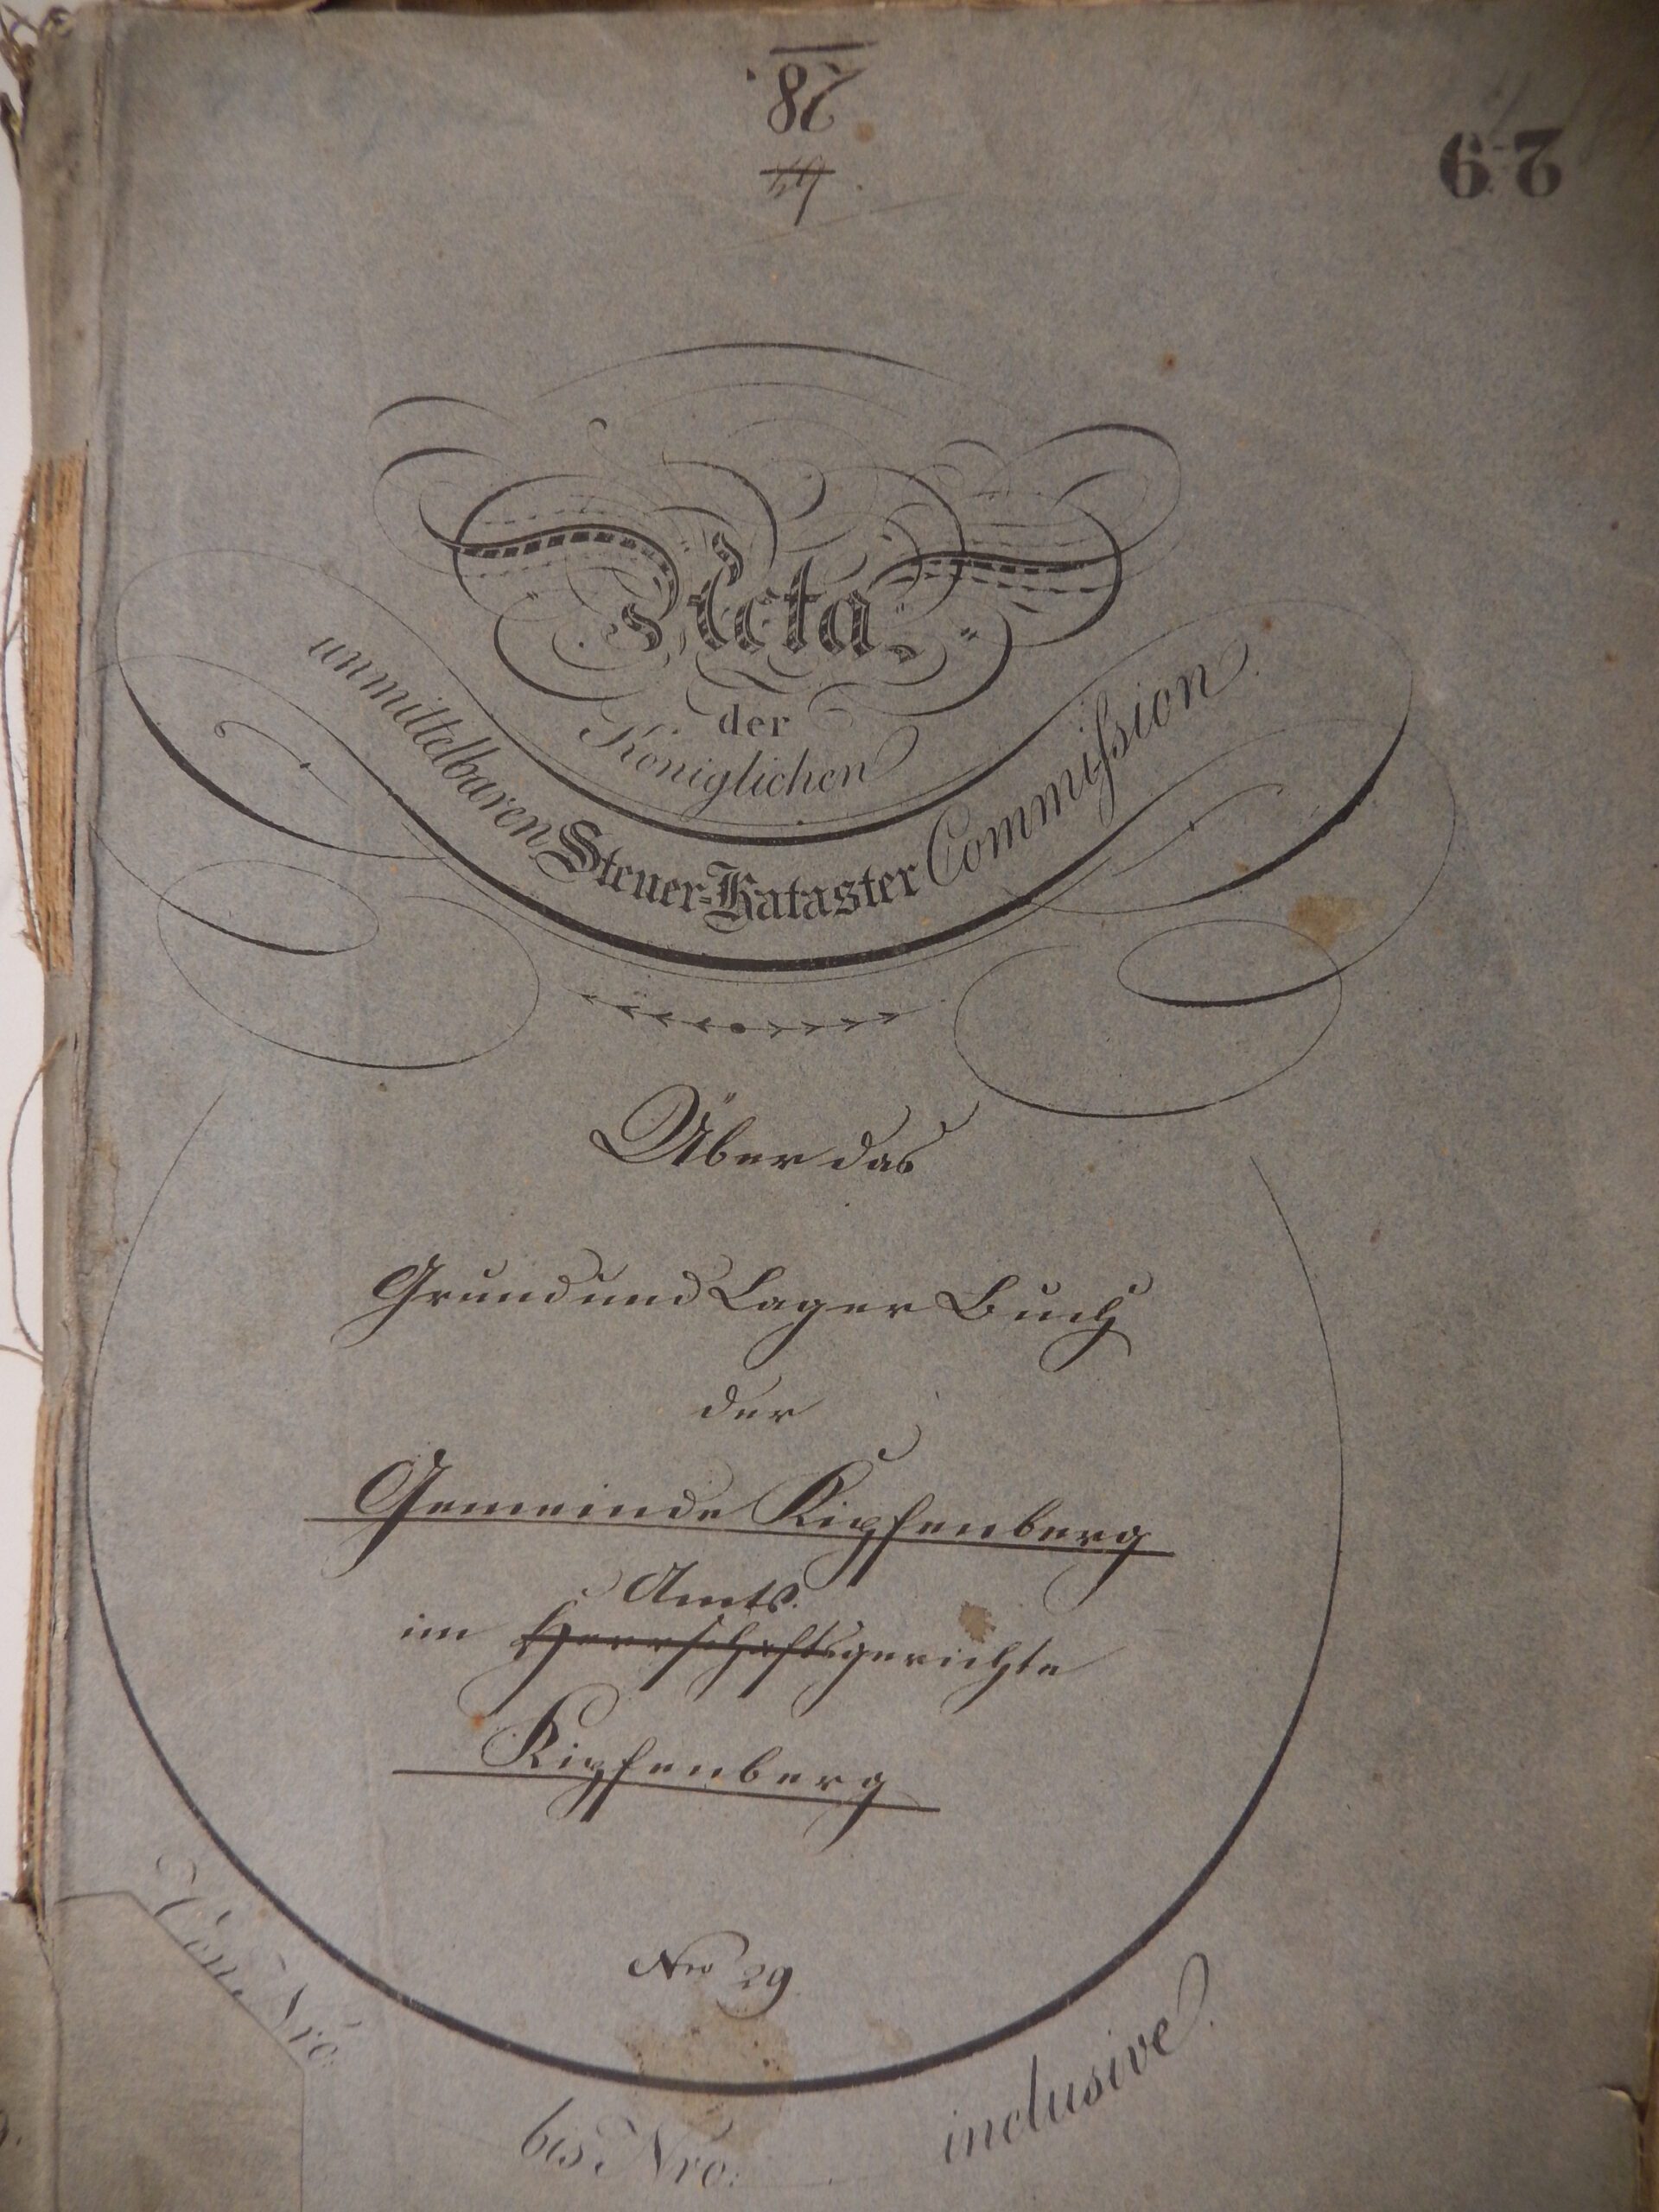 28.
29
Acta
der
Königlichen
unmittelbaren Steuer=Kataster Commißion.
Über das
Grund und Lager Buch
der
Gemeinde Kipfenberg
Amts.
im Herrschaftsgerichte
Kipfenberg
Nro 29
Von Nro.
bis Nro: inclusive.